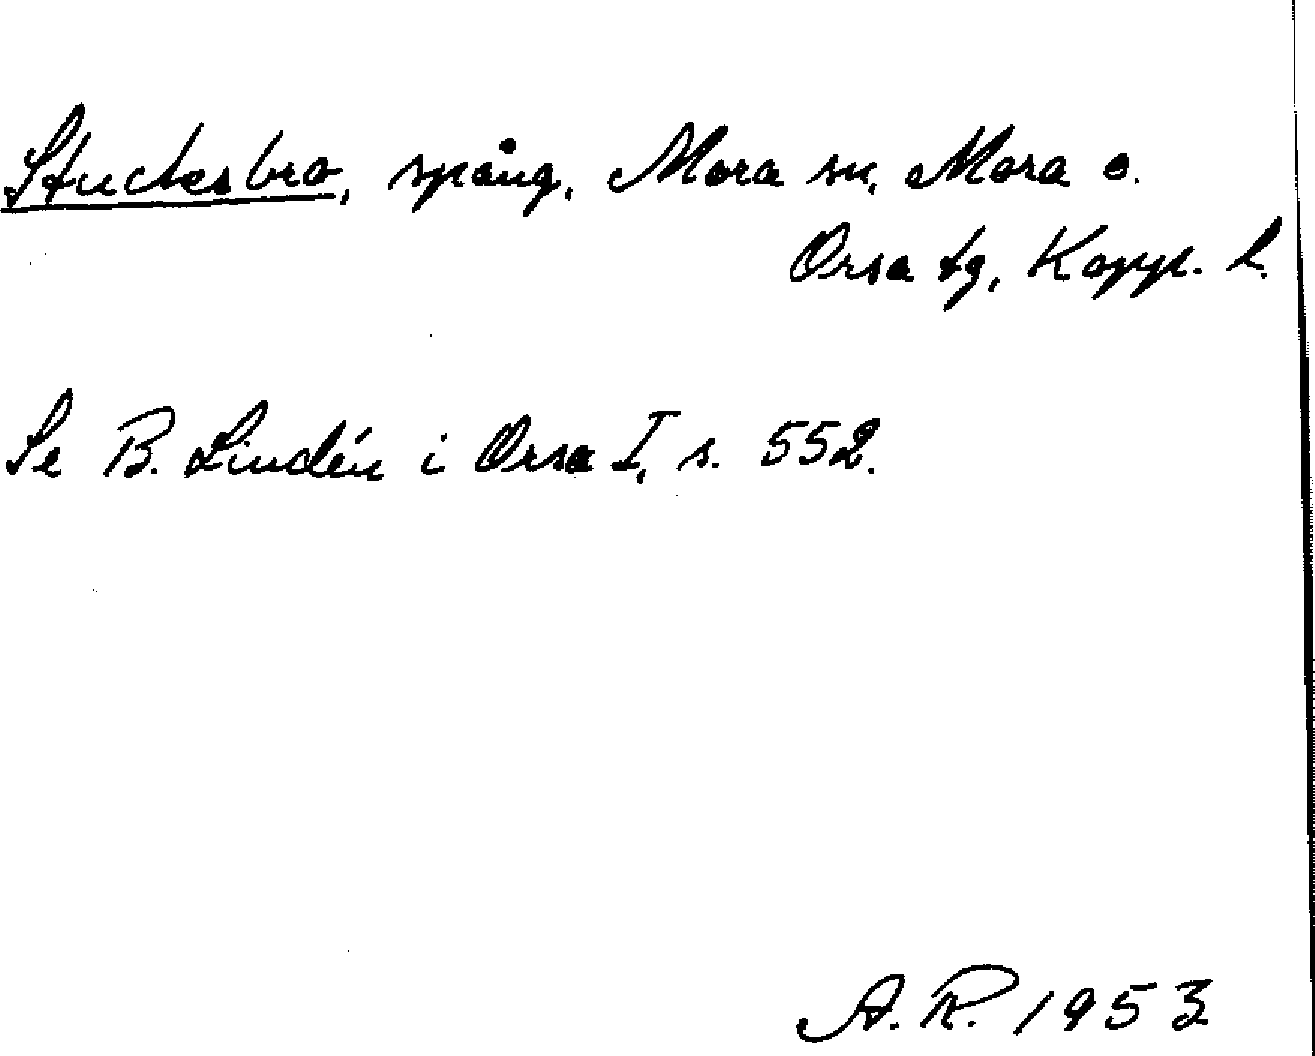 Stuckesbro, spång, Mora sn, Mora o.
Orsa tg, Kopp. l.
Se B. Lindén i Orsa I, s. 552.
A. R. 1953